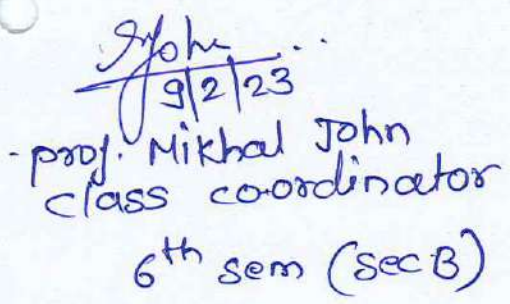 John
9/2/23
- prof. Mikhal John
class co-ordinator
6th sem (sec B)